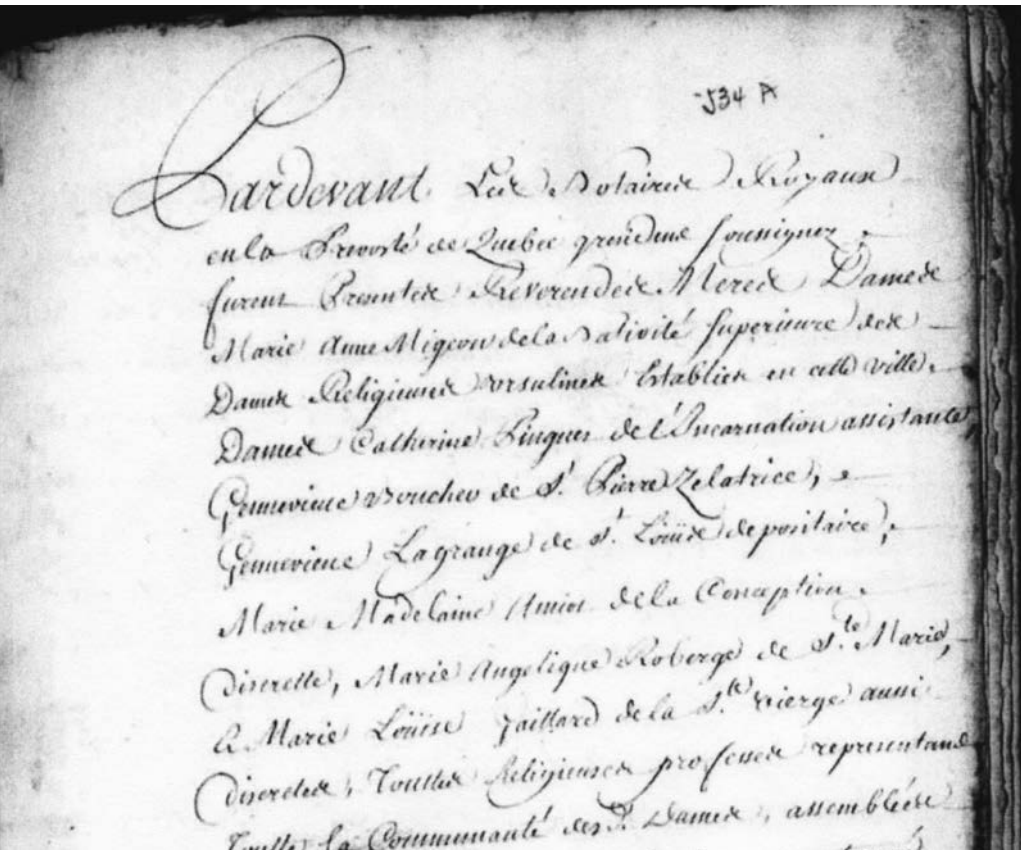 534 A
Pardevant Les Notaires Royaux
en la Prevosté de Quebec y residens soussignez,
furent Presentes Reverendes Meres Dames
Marie Anne Migeon de la Nativité superieure des
Dames Religieuses Ursulines Establies en cette ville.
Dames Catherine Pinguet de l'Incarnation assistante,
Gennevieve Boucher de St. Pierre Zelatrice,
Gennevieve Lagrange de St. Loüis depositaire,
Marie Madelaine Amiot de la Conception
Discrette, Marie Angelique Roberge de Ste. Marie,
& Marie Loüise Gaillard de la Ste. Vierge aussi
Discretes, Touttes Religieuses professes representans
Toutte la Communauté desd. Dames, assemblées